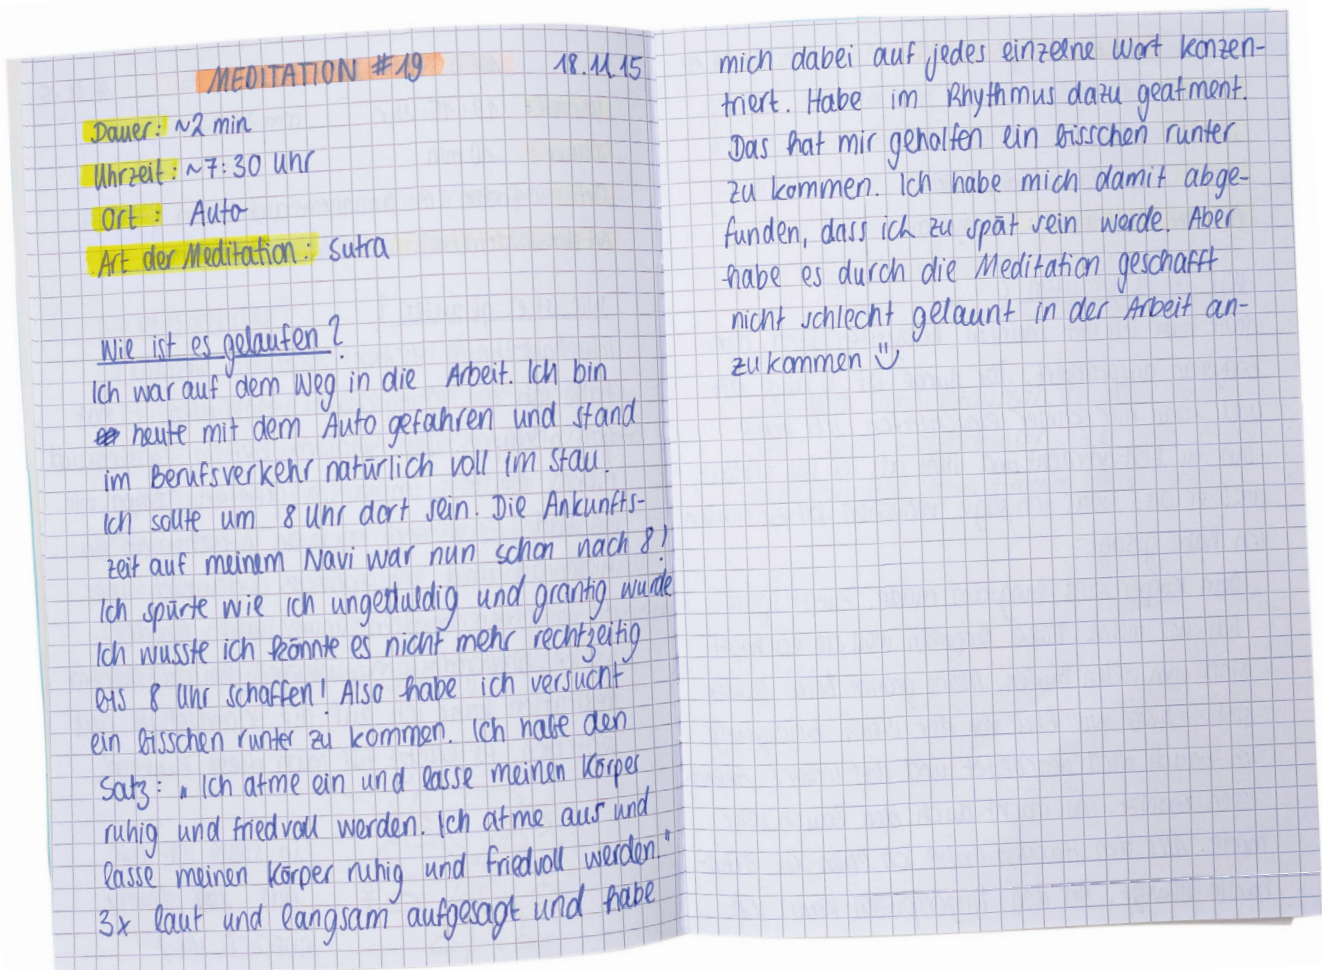 MEDITATION #19 18.11.15
Dauer: ~2 min
Uhrzeit: ~7:30 Uhr
Ort: Auto
Art der Meditation: Sutra
Wie ist es gelaufen?
Ich war auf dem Weg in die Arbeit. Ich bin
heute mit dem Auto gefahren und stand
im Berufsverkehr natürlich voll im Stau.
Ich sollte um 8 Uhr dort sein. Die Ankunfts-
zeit auf meinem Navi war nun schon nach 8!
Ich spürte wie ich ungeduldig und grantig wurde
Ich wusste ich könnte es nicht mehr rechtzeitig
bis 8 Uhr schaffen! Also habe ich versucht
ein bisschen runter zu kommen. Ich habe den
Satz: „Ich atme ein und lasse meinen Körper
ruhig und friedvoll werden. Ich atme aus und
lasse meinen Körper ruhig und friedvoll werden."
3x laut und langsam aufgesagt und habe
mich dabei auf jedes einzelne Wort konzen-
triert. Habe im Rhythmus dazu geatment.
Das hat mir geholfen ein bisschen runter
zu kommen. Ich habe mich damit abge-
funden, dass ich zu spät sein werde. Aber
habe es durch die Meditation geschafft
nicht schlecht gelaunt in der Arbeit an-
zukommen